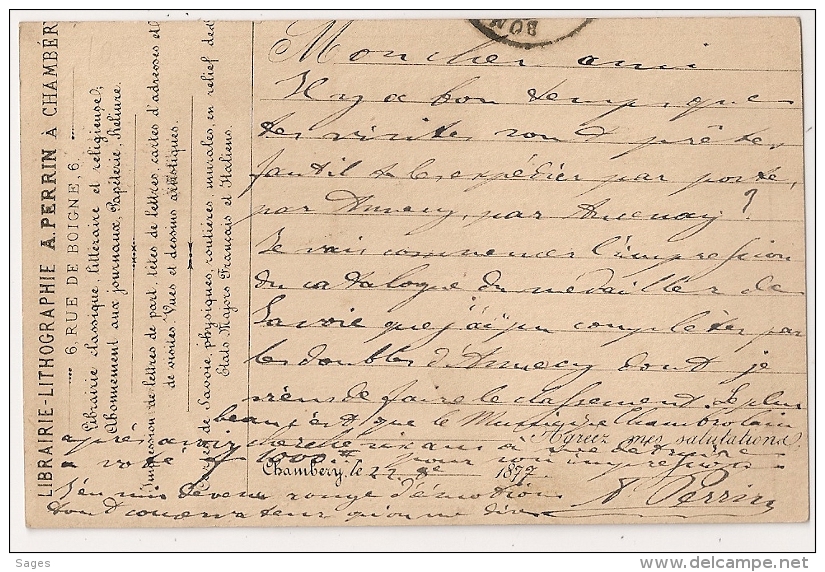 LIBRAIRIE-LITHOGRAPHIE A. PERRIN À CHAMBÉR
6, RUE DE BOIGNE, 6.
Librairie classique, littéraire et religieuse,
Abonnement aux journaux, Papéterie, Reliure.
Impression de lettres de part, têtes de lettres, cartes d'adresses et
de visites Vues et dessins artistiques.
Cartes de Savoie, physiques, routières murales, en relief des
États Majors Français et Italiens.
BON
Mon cher ami
Il y a bon temps que
tes visites sont prêtes
faut il te les expédier par poste,
par Annecy, par Aucenay ?
Je vais commencer l'impression
du catalogue du médaillier de
Savoie que j'ai pu compléter par
les doubles d'Annecy dont je
viens de faire le classement. Le plus
beau c'est que le Municipe Chambérien
après avoir cherché six ans
a voté f 1000 pour son impression
Agréez mes salutations
Chambéry, le 22 1877
J'en suis devenu rouge d'émotion
tout conservateur qu'on me dise
A Perrin
Sages
delcampe.net